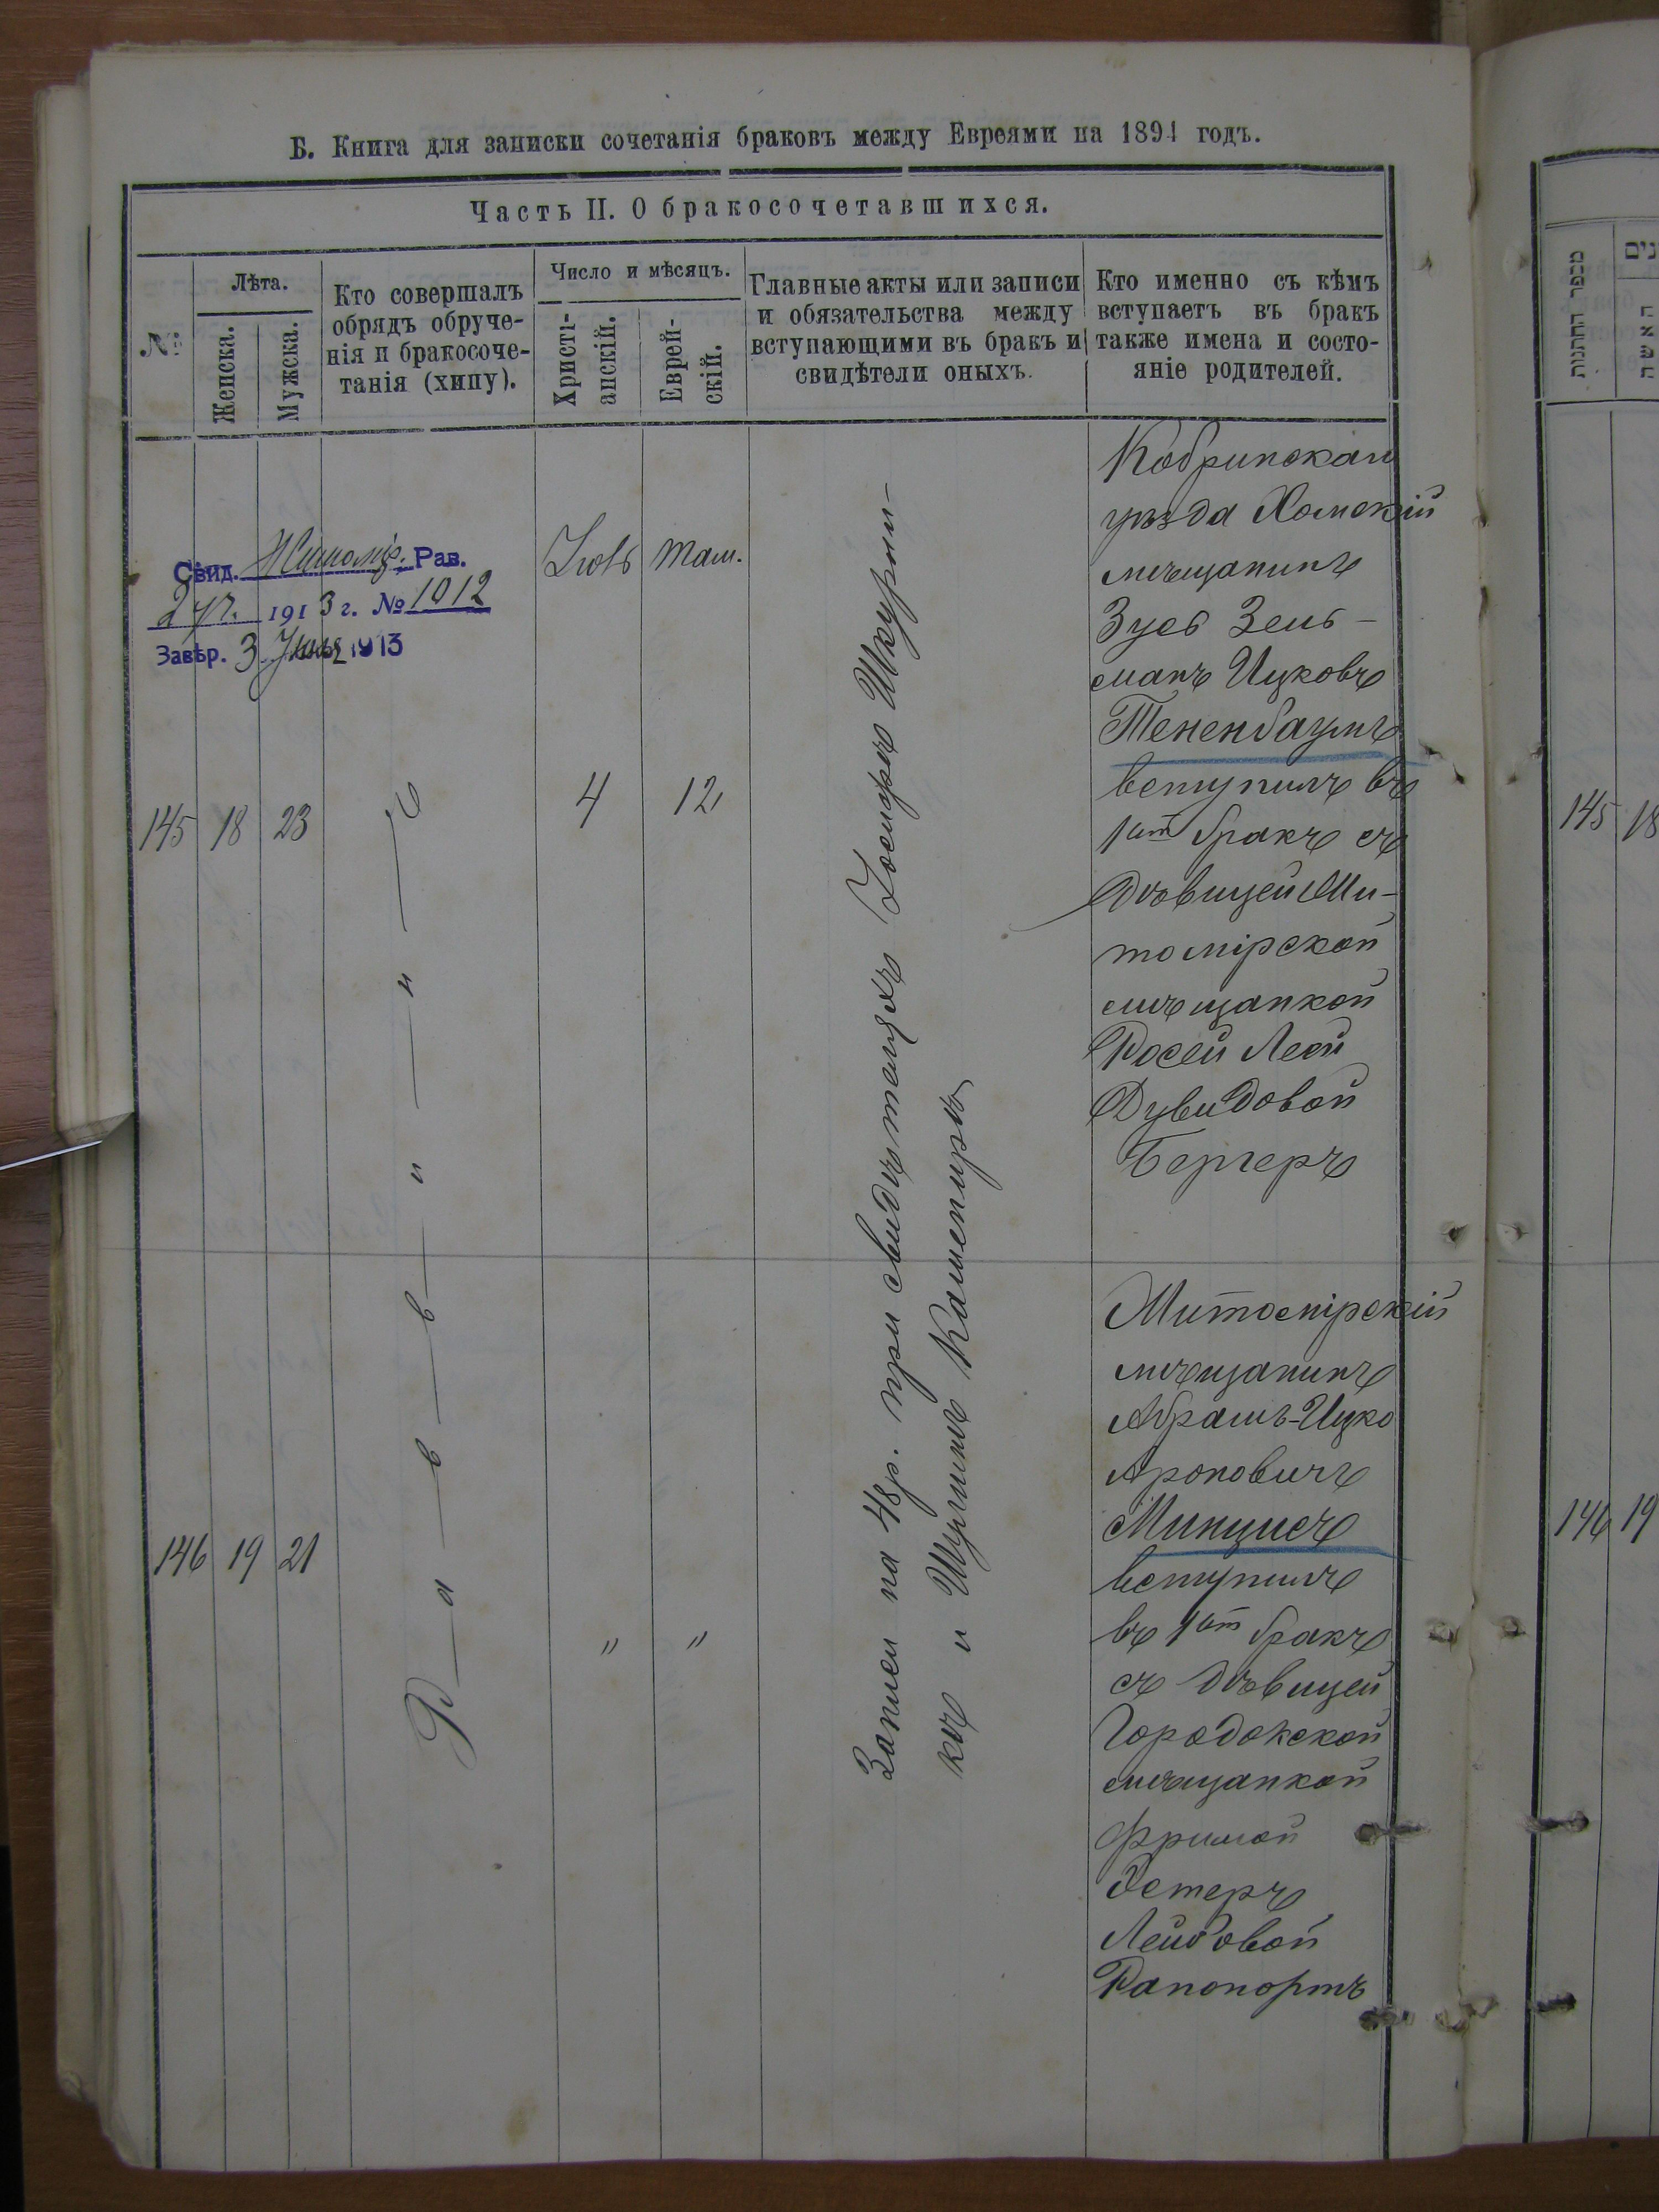 Б. Книга для записки сочетанія браковъ между Евреями на 1894 годъ.
Часть II. О бракосочетавшихся.
№
Лѣта.
Женска.
Мужска.
Кто совершалъ
обрядъ обруче-
нія и бракосоче-
танія (хипу).
Число и мѣсяцъ.
Христі-
анскій.
Еврей-
скій.
Главные акты или записи
и обязательства между
вступающими въ бракъ и
свидѣтели оныхъ.
Кто именно съ кѣмъ
вступаетъ въ бракъ
также имена и состо-
яніе родителей.
Свид. Житомір. Рав.
1913 г. № 1012
Завѣр. 3 1913
Іюль
Там.
145
18
23
4
12
Р—а—в—в—и—н—ъ
Записи на 48 р. при свидѣтеляхъ Іосифѣ Шкурни-
кѣ и Шулимѣ Камениръ
Кобринскаго
уѣзда Хомскій
мѣщанинъ
Зусь Зель-
манъ Ицковъ
Тененбаумъ
вступилъ въ
1ый бракъ съ
дѣвицей Жи-
томірской
мѣщанкой
Росей Леей
Дувидовой
Бергеръ
146
19
21
"
"
Житомірскій
мѣщанинъ
Абрамъ-Ицко
Ароновичъ
Минцисъ
вступилъ
въ 1ый бракъ
съ дѣвицей
Городокской
мѣщанкой
Фримой
Эстеръ
Лейбовой
Рапопортъ
מספר החתונות
האשה
145
18
146
19